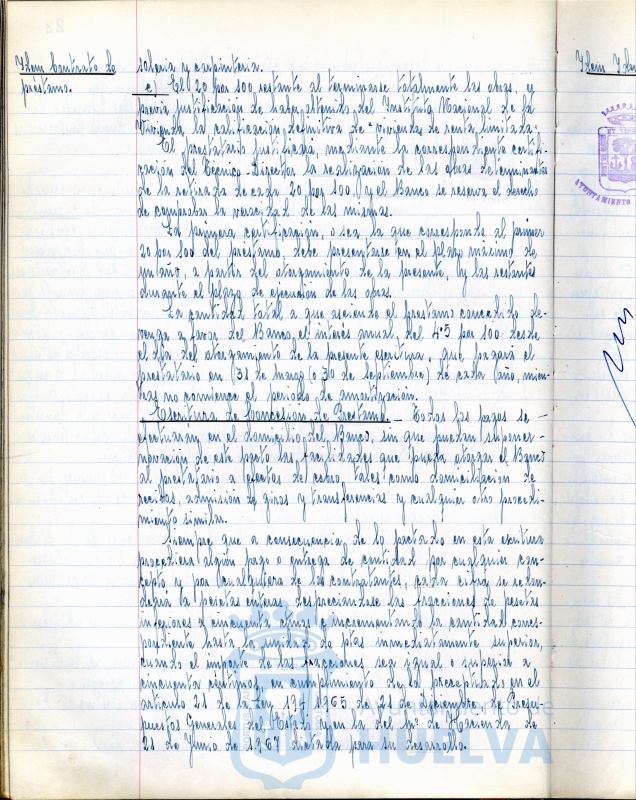 Idem Contrato de
préstamo.
solería y carpintería.
e) El 20 por 100 restante al terminarse totalmente las obras, y
previa justificación de haber obtenido del Instituto Nacional de la
Vivienda, la calificación definitiva de "viviendas de renta limitada".
El prestatario justificará, mediante la correspondiente certifi-
cación del Técnico-Director la realización de las obras determinantes
de la retirada de cada 20 por 100, y el Banco se reserva el derecho
de comprobar la veracidad de las mismas.
La primera certificación, o sea la que corresponde al primer
20 por 100 del préstamo, debe presentarse en el plazo máximo de
un año, a partir del otorgamiento de la presente, y las restantes
durante el plazo de ejecución de las obras.
La cantidad total a que asciende el préstamo concedido de-
venga a favor del Banco el interés anual del 4'5 por 100 desde
el día del otorgamiento de la presente escritura, que pagará el
prestatario en (31 de marzo o 30 de septiembre) de cada año, mien-
tras no comience el período de amortización.
Escritura de Concesión de Préstamo - Todos los pagos se
efectuarán en el domicilio del Banco, sin que puedan suponer
novación de este pacto las facilidades que pueda otorgar el Banco
al prestatario a efectos de cobro, tales como domiciliación de
recibos, admisión de giros y transferencias y cualquier otro procedi-
miento similar.
Siempre que a consecuencia de lo pactado en esta escritura
procediera algún pago o entrega de cantidad por cualquier con-
cepto y por cualquiera de los contratantes, cada cifra se redon-
deará a pesetas enteras despreciándose las fracciones de pesetas
inferiores a cincuenta ctmos e incrementando la cantidad corres-
pondiente hasta la unidad de ptas inmediatamente superior,
cuando el importe de las fracciones sea igual o superior a
cincuenta céntimos, en cumplimiento de lo preceptuado en el
artículo 21 de la Ley 194/1965 de 21 de diciembre de Presu-
puestos Generales del Estado y en la del Mº de Hacienda de
21 de Junio de 1967 dictada para su desarrollo.
Idem Idem
AYUNTAMIENTO
Ayuntamiento de
HUELVA